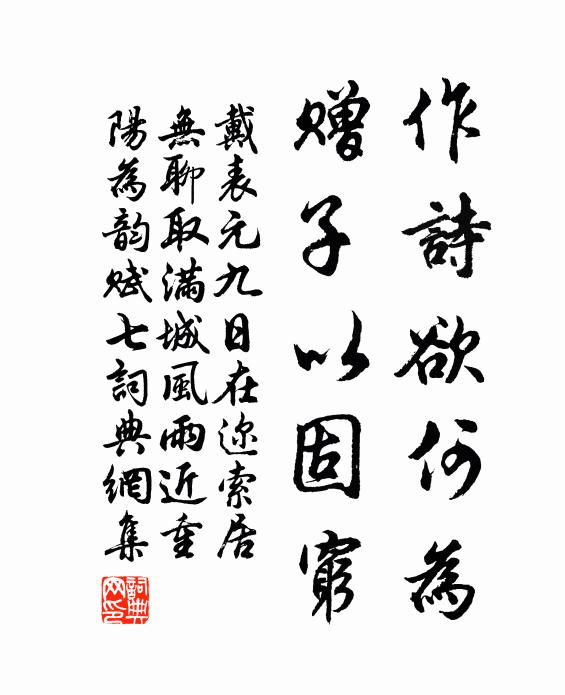 作詩欲何為
贈子以固窮
戴表元九日在迩索居
無聊取滿城風雨近重
陽為韵賦七詞典網集
詞典
网印